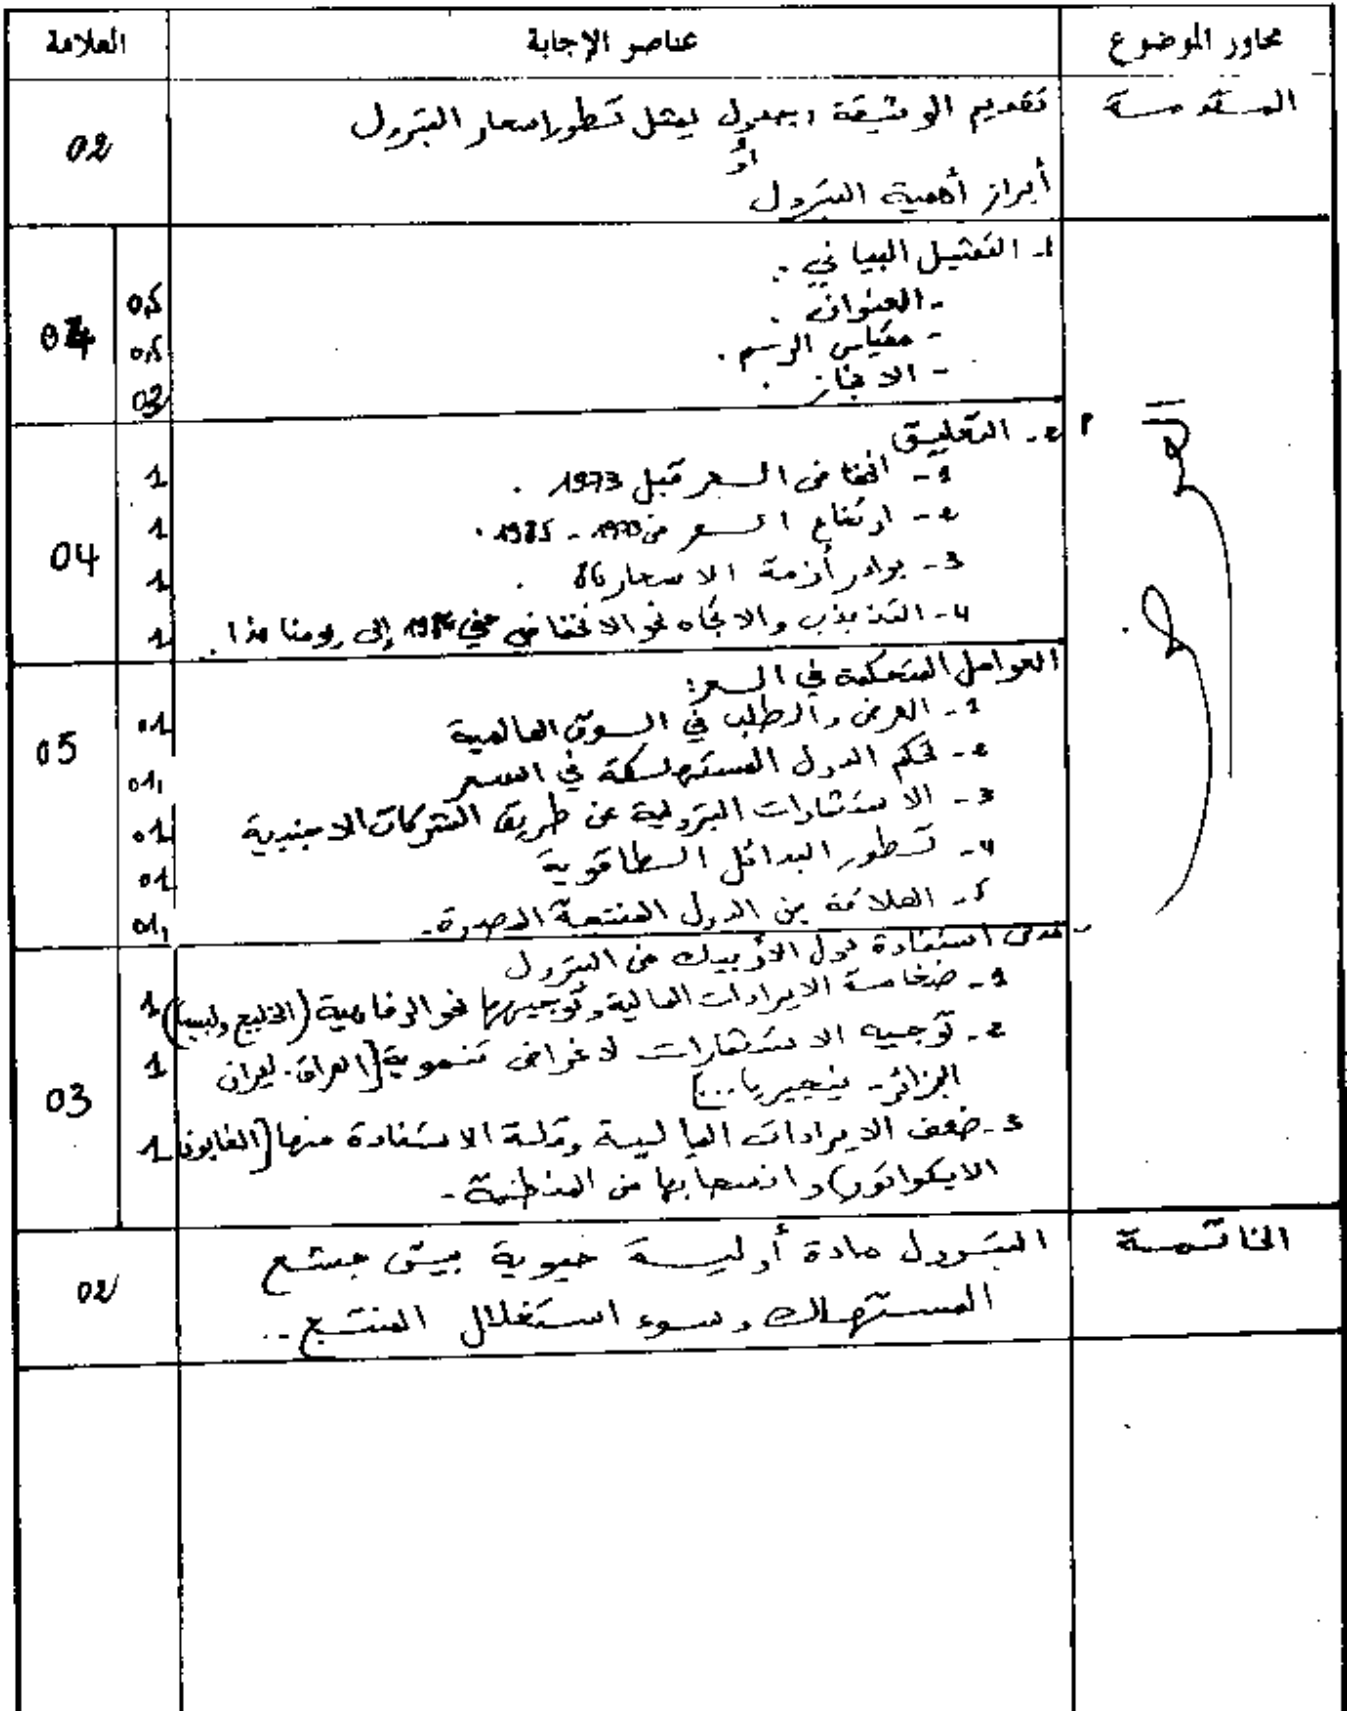 محاور الموضوع عناصر الإجابة العلامة
المقدمة تقديم الوثيقة: جدول يمثل تطور اسعار البترول 02
أو
أبراز أهمية البترول
1- التمثيل البياني.
- العنوان. 0,5
- مقياس الرسم. 0,5 04
- الانجاز. 03
2- التعليق
1- انخفاض السعر قبل 1973. 1
2- ارتفاع السعر من 1973 - 1985. 1
04
3- بوادر أزمة الاسعار 86. 1
4- التذبذب والاتجاه نحو الانخفاض إلى يومنا هذا. 1
العوامل المتحكمة في السعر:
1- العرض والطلب في السوق العالمية 01
05
2- تحكم الدول المستهلكة في السعر 01
3- الاستثمارات البترولية عن طريق الشركات الاجنبية 01
4- تطور البدائل الطاقوية 01
5- العلاقة بين الدول المنتجة المصدرة. 01
- مدى استفادة دول الأوبيك من البترول
1- ضخامة الايرادات المالية وتوجيهها نحو الرفاهية (الخليج وليبيا) 1
2- توجيه الاستثمارات لاغراض تنموية [العراق. ايران 1
الجزائر- نيجيريا...] 03
3- ضعف الايرادات المالية وقلة الاستفادة منها (الغابون 1
الايكوادور) وانسحابها من المنظمة.
الخاتمة البترول مادة أولية حيوية بيتى جشع 02
المستهلك وسوء استغلال المنتج..